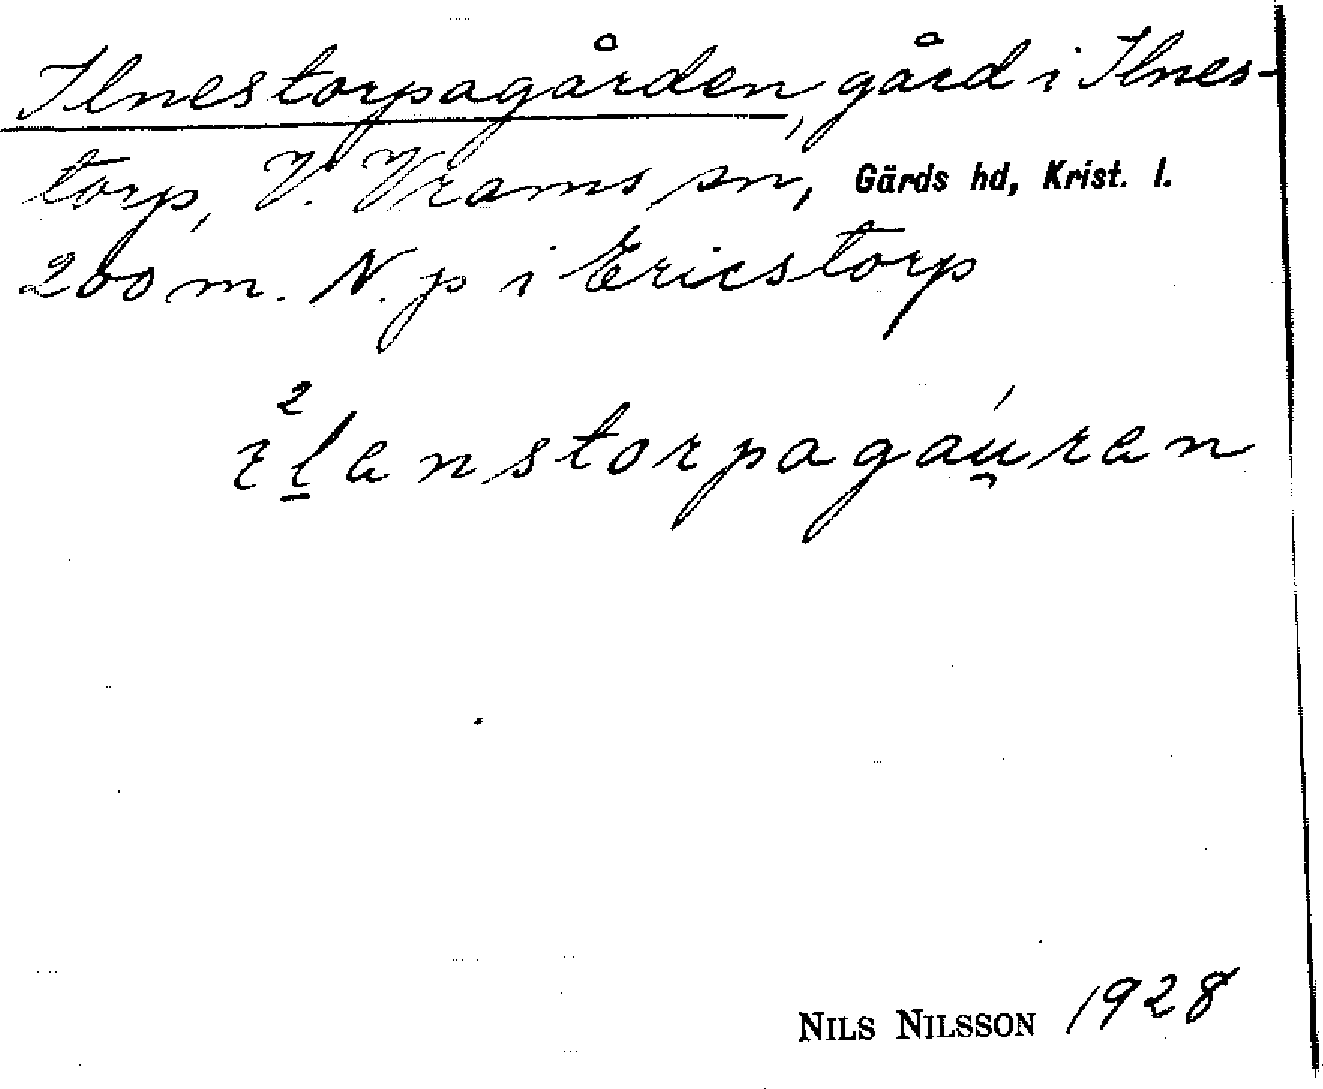 Ilnestorpagården, gård i Ilnes-
torp, V. Vrams sn, Gärds hd, Krist. l.
200 m. N. p i Ericstorp
NILS NILSSON 1928